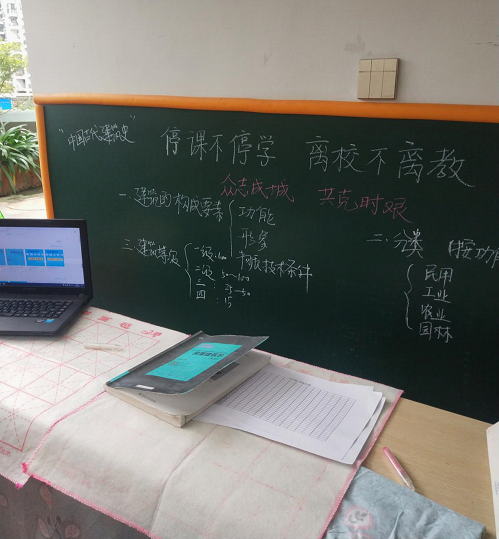 "中国古代建筑史"
停课不停学 离校不离教
众志成城 共克时艰
一、建筑的构成要素
功能
形象
物质技术条件
二、分类(按功能
民用
工业
农业
园林
三、建筑等级
一级:100
二级:50—100
三:25—50
四:15